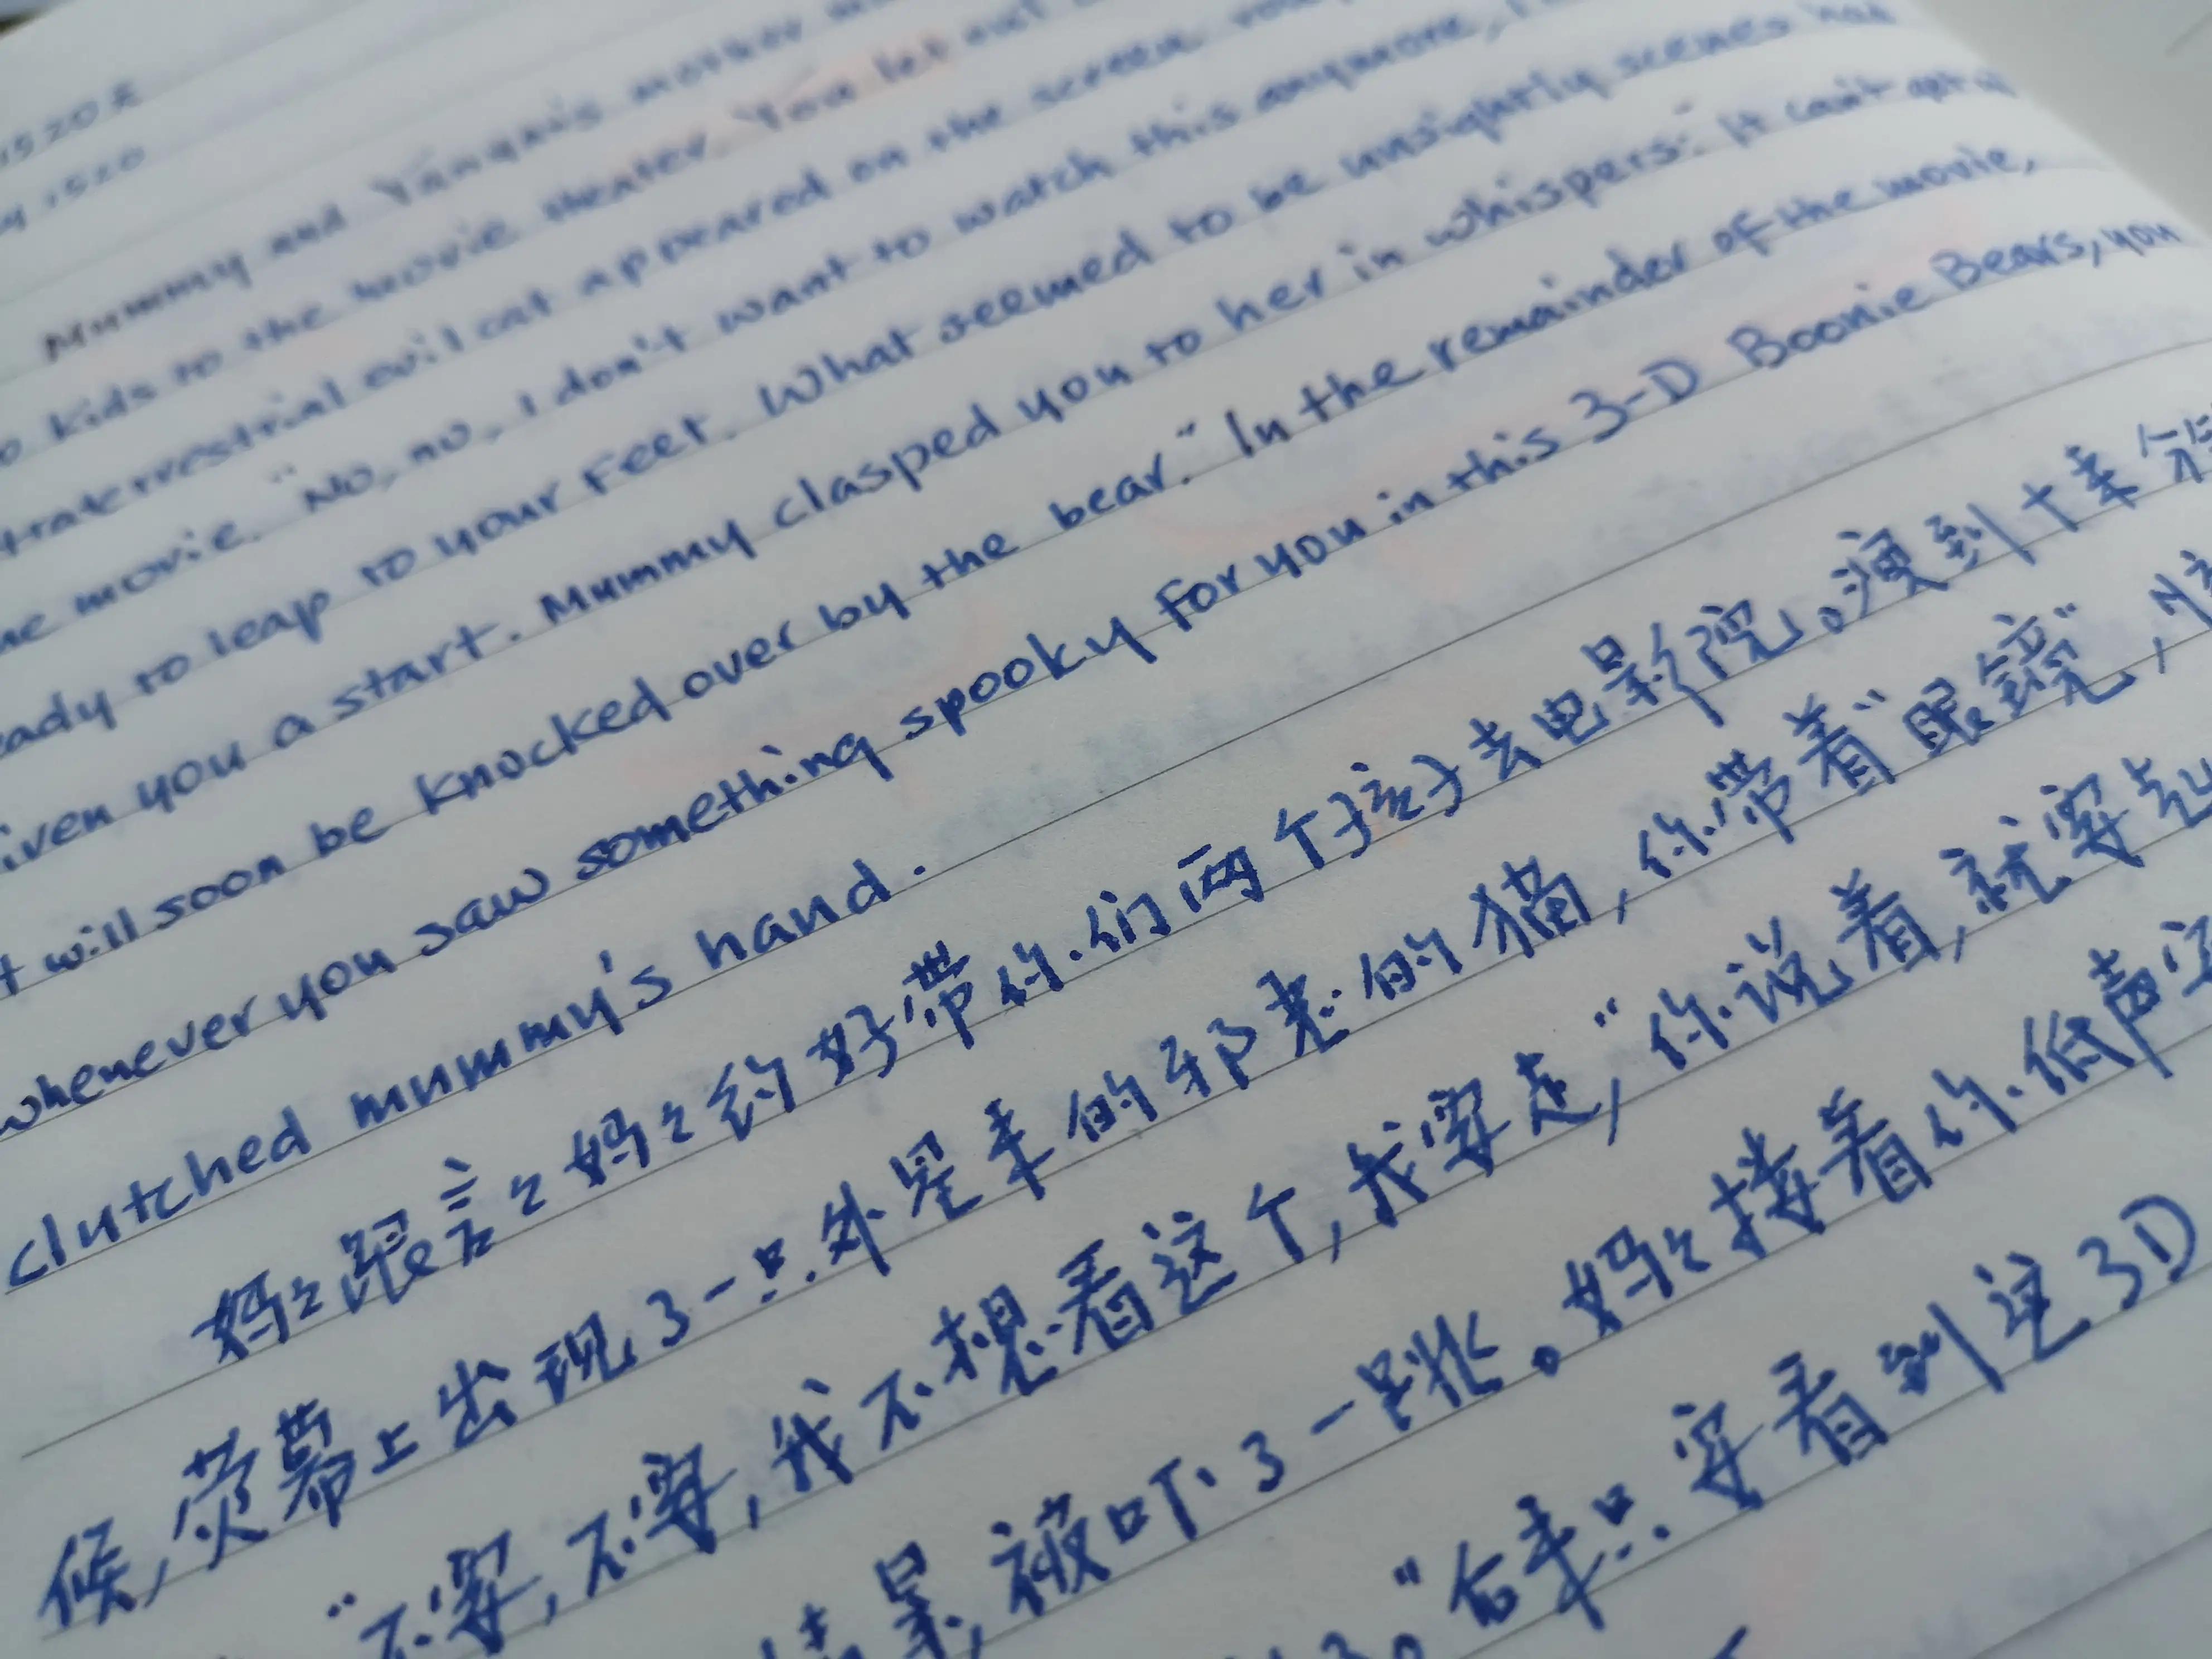 15202
1520
Mummy and Yanyan's mother
kids to the movie theater. You let out
evil cat appeared on the screen
movie. "No, no, I don't want to watch this anymore,
to leap to your feet. What seemed to be unsightly scenes had
you a start. Mummy clasped you to her in whispers: "It can't get
will soon be knocked over by the bear." In the remainder of the movie,
whenever you saw something spooky for you in this 3-D Boonie Bears, you
clutched mummy's hand.
妈々跟言々妈々约好带你们两个孩子去电影院。演到
候,荧幕上出现了一只外星来的邪恶的猫,你带着"眼镜",
"不要,不要,我不想看这个,我要走,"你说着,就要
景,被吓了一跳。妈々搂着你低声
"后来只要看到这3D